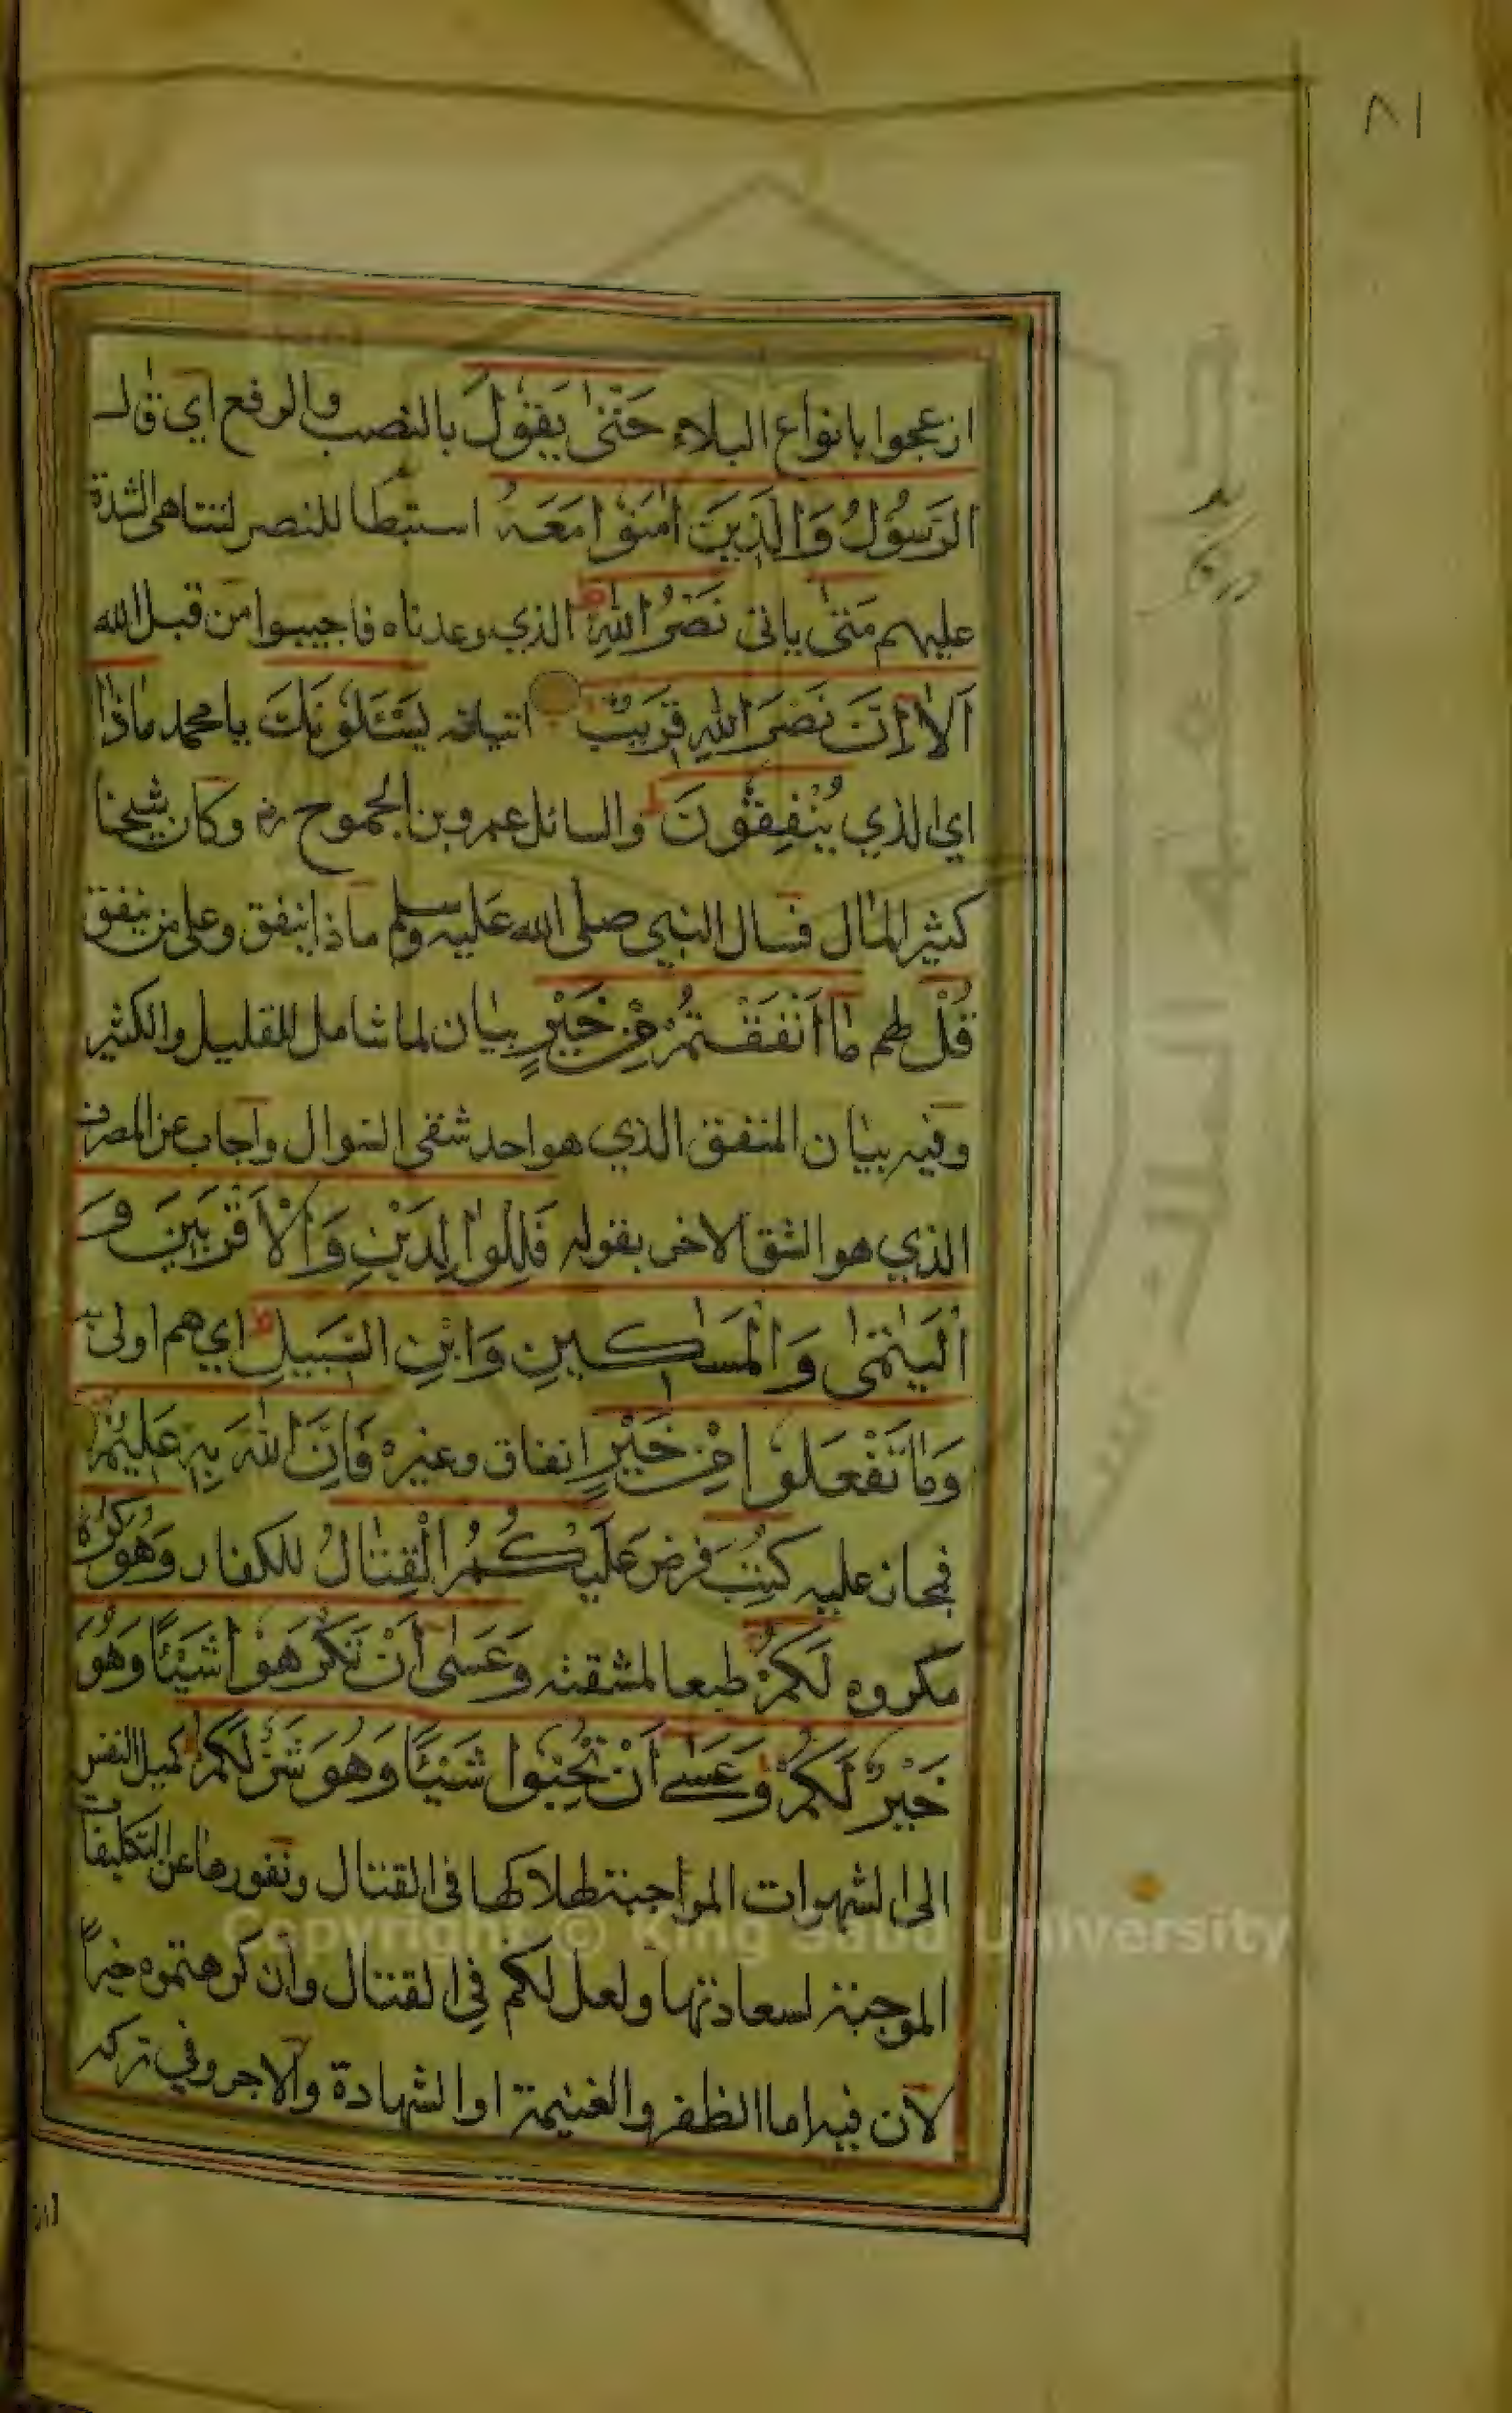 ٨١
ازعجوا بانواع البلاء حَتّىٰ يَقُولَ بالنصب والرفع اي قال
الرَّسُولُ وَالَّذِينَ اٰمَنُوْا مَعَهُ استبطأ للنصر لتناهى الشدة
عليهم مَتىٰ ياتى نَصْرُ اللهِ الذي وعدناه فاجيبوا من قبل الله
اَلَا اِنَّ نَصْرَ اللهِ قَرِيْبٌ اتيانه يَسْئَلُوْنَكَ يا محمد مَاذَا
اي الذي يُنْفِقُوْنَ والسائل عمرو بن الجموح رض وكان شيخا
كثير المال فسال النبي صلى الله عليه وسلم ماذا ينفق وعلى من ينفق
قُلْ لهم مَا اَنْفَقْتُمْ مِنْ خَيْرٍ بيان لما شامل للقليل والكثير
وفيه بيان المنفق الذي هو احد شقى السوال واجاب عن المصرف
الذي هو الشق الاخر بقوله فَلِلْوَالِدَيْنِ وَالْاَقْرَبِيْنَ وَ
الْيَتٰمٰى وَالْمَسٰاكِينِ وَابْنِ السَّبِيلِ اي هم اولى به
وَمَا تَفْعَلُوْا مِنْ خَيْرٍ انفاق وغيره فَاِنَّ اللهَ بِهِ عَلِيْمٌ
فمجاز عليه كُتِبَ فرض عَلَيْكُمُ الْقِتَالُ للكفار وَهُوَ كُرْهٌ
مكروه لَكُمْ طبعا لمشقته وَعَسٰى اَنْ تَكْرَهُوْا شَيْئًا وَهُوَ
خَيْرٌ لَكُمْ وَعَسٰى اَنْ تُحِبُّوا شَيْئًا وَهُوَ شَرٌّ لَكُمْ لميل النفس
الى الشهوات الموجبة لهلاكها فى القتال ونفورها عن التكليفات
الموجبة لسعادتها ولعل لكم في القتال وان كرهتموه خيراً
لان فيه اما الظفر والغنيمة او الشهادة والاجر وفي تركه
Copyright © King Saud University